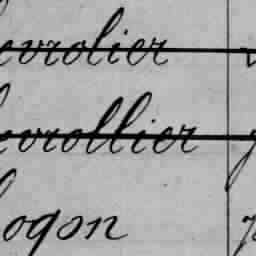 evrolier
evrollier
hogon